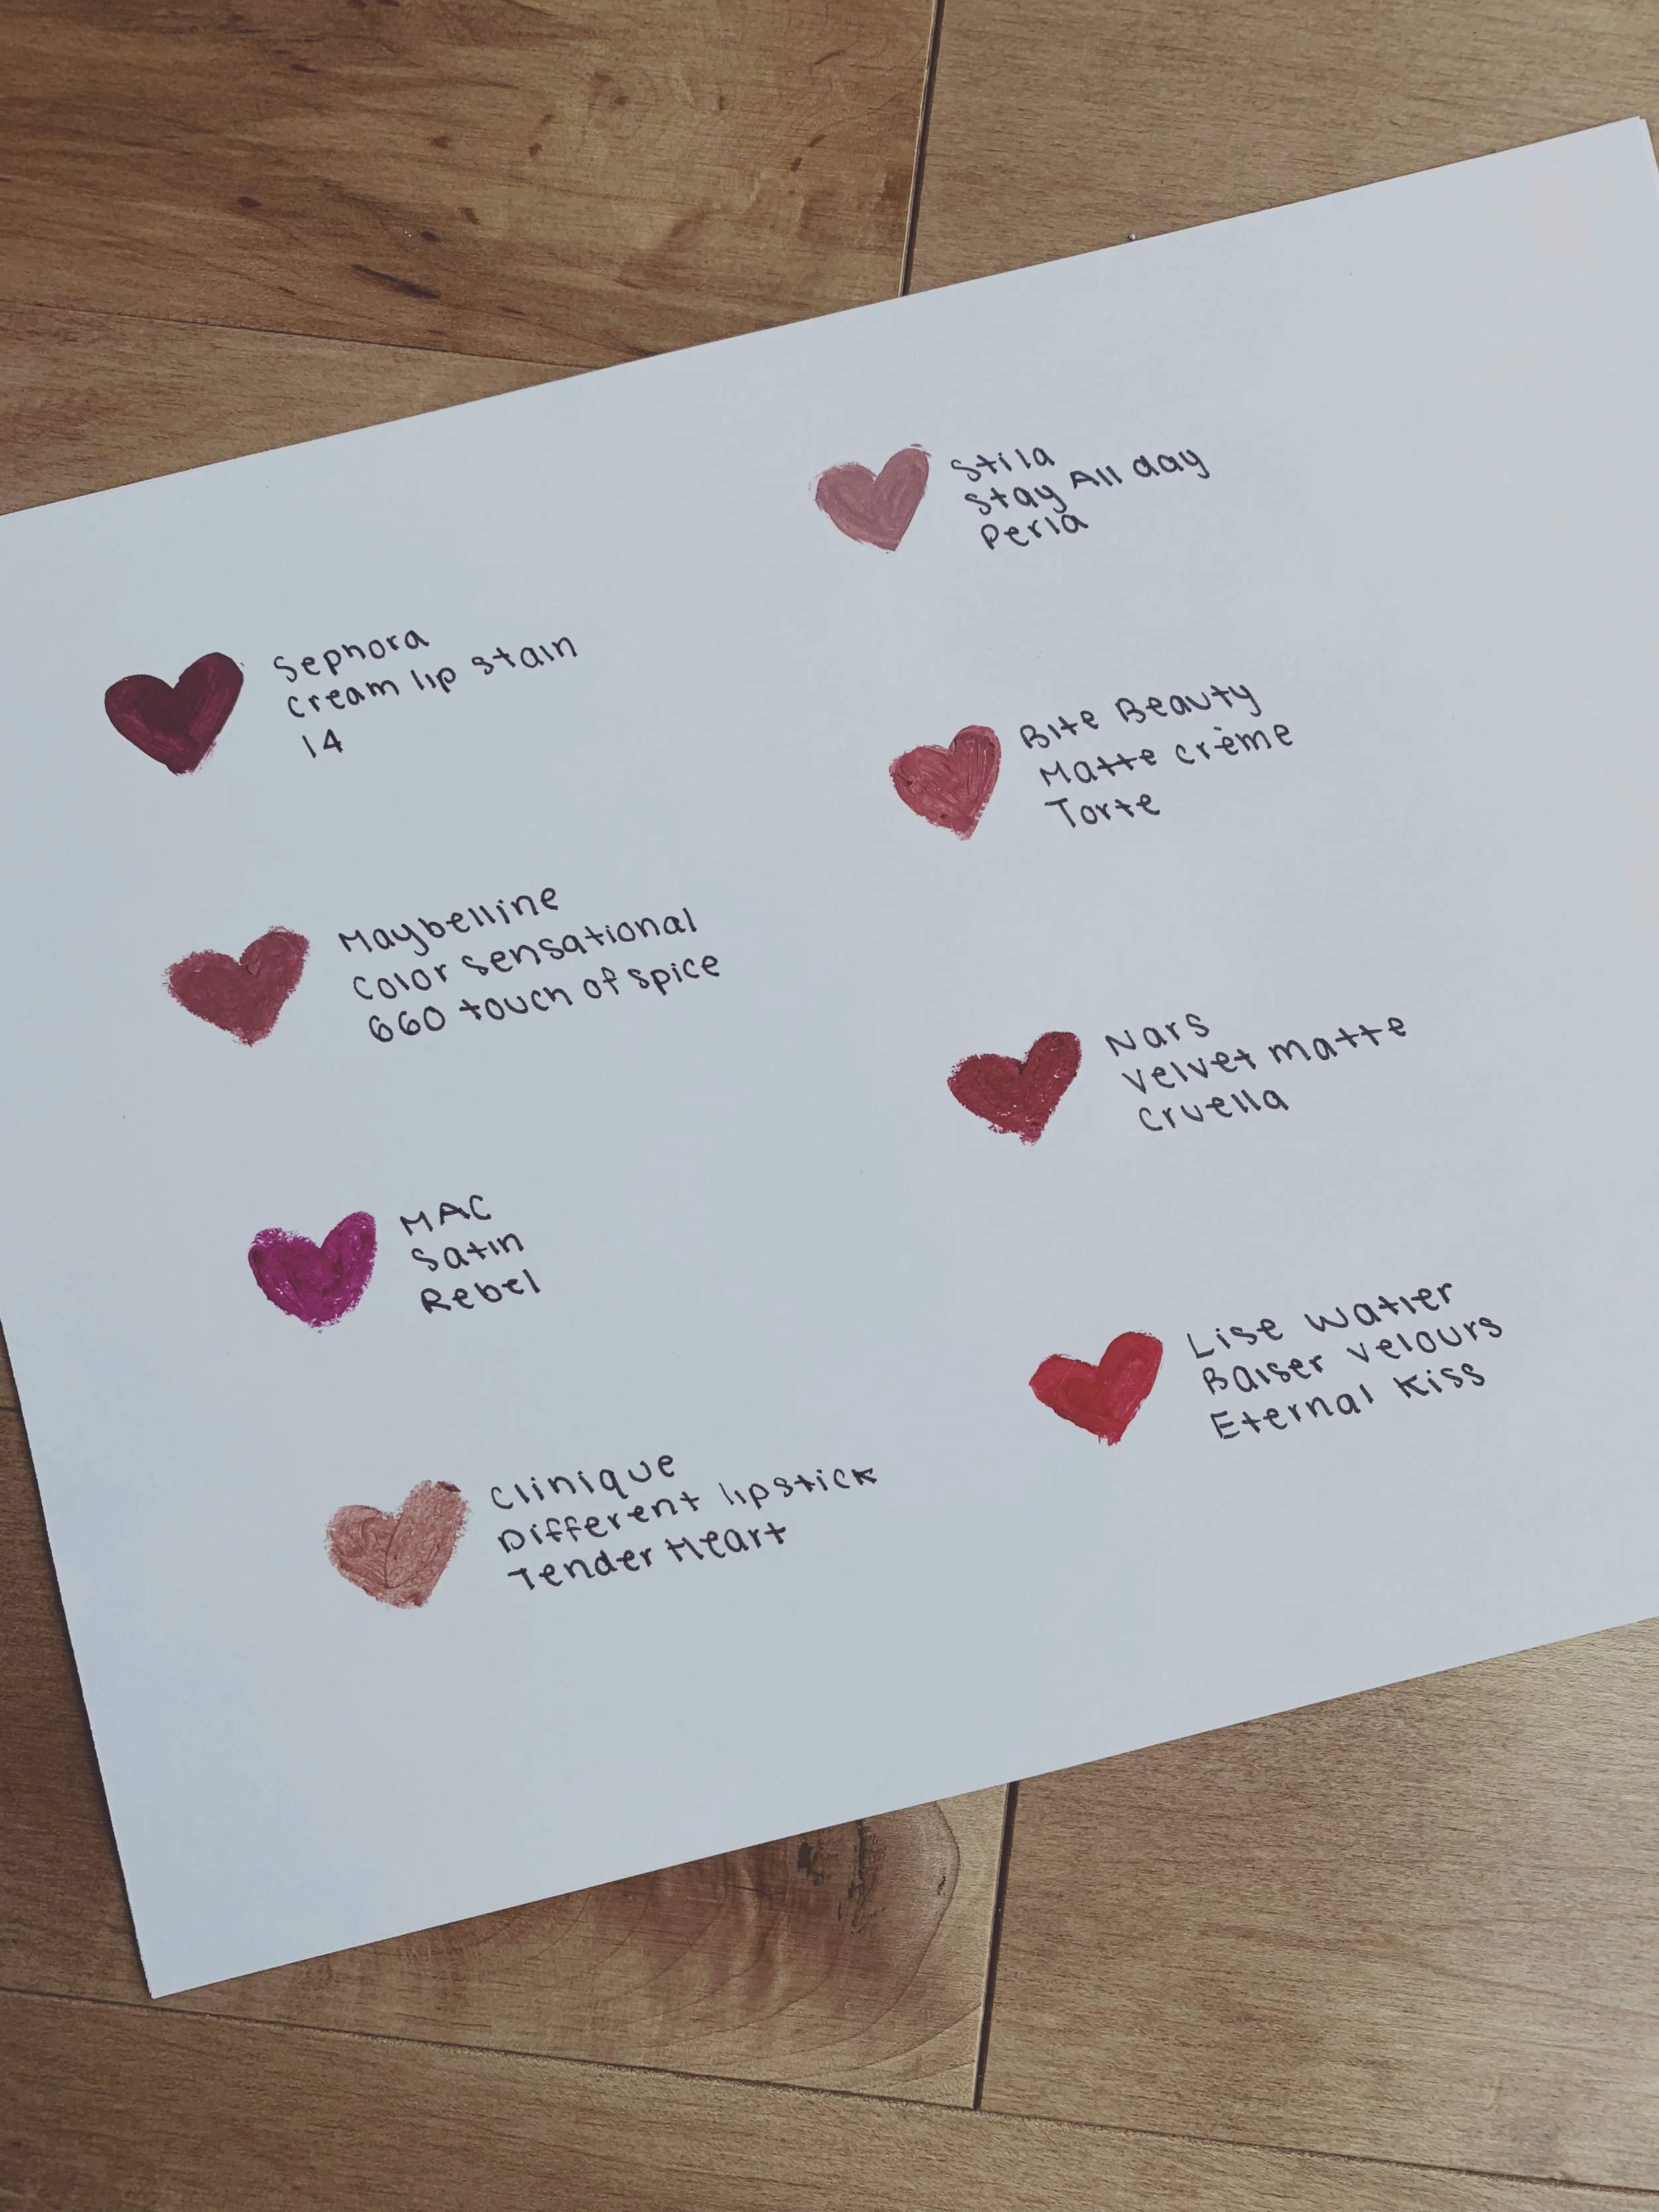 Sephora
cream lip stain
14
Maybelline
Color sensational
660 touch of spice
MAC
Satin
Rebel
Clinique
Different lipstick
Tender Heart
Stila
Stay All day
Perla
Bite Beauty
Matte crème
Torte
Nars
Velvet matte
Cruella
Lise Watier
Baiser velours
Eternal Kiss